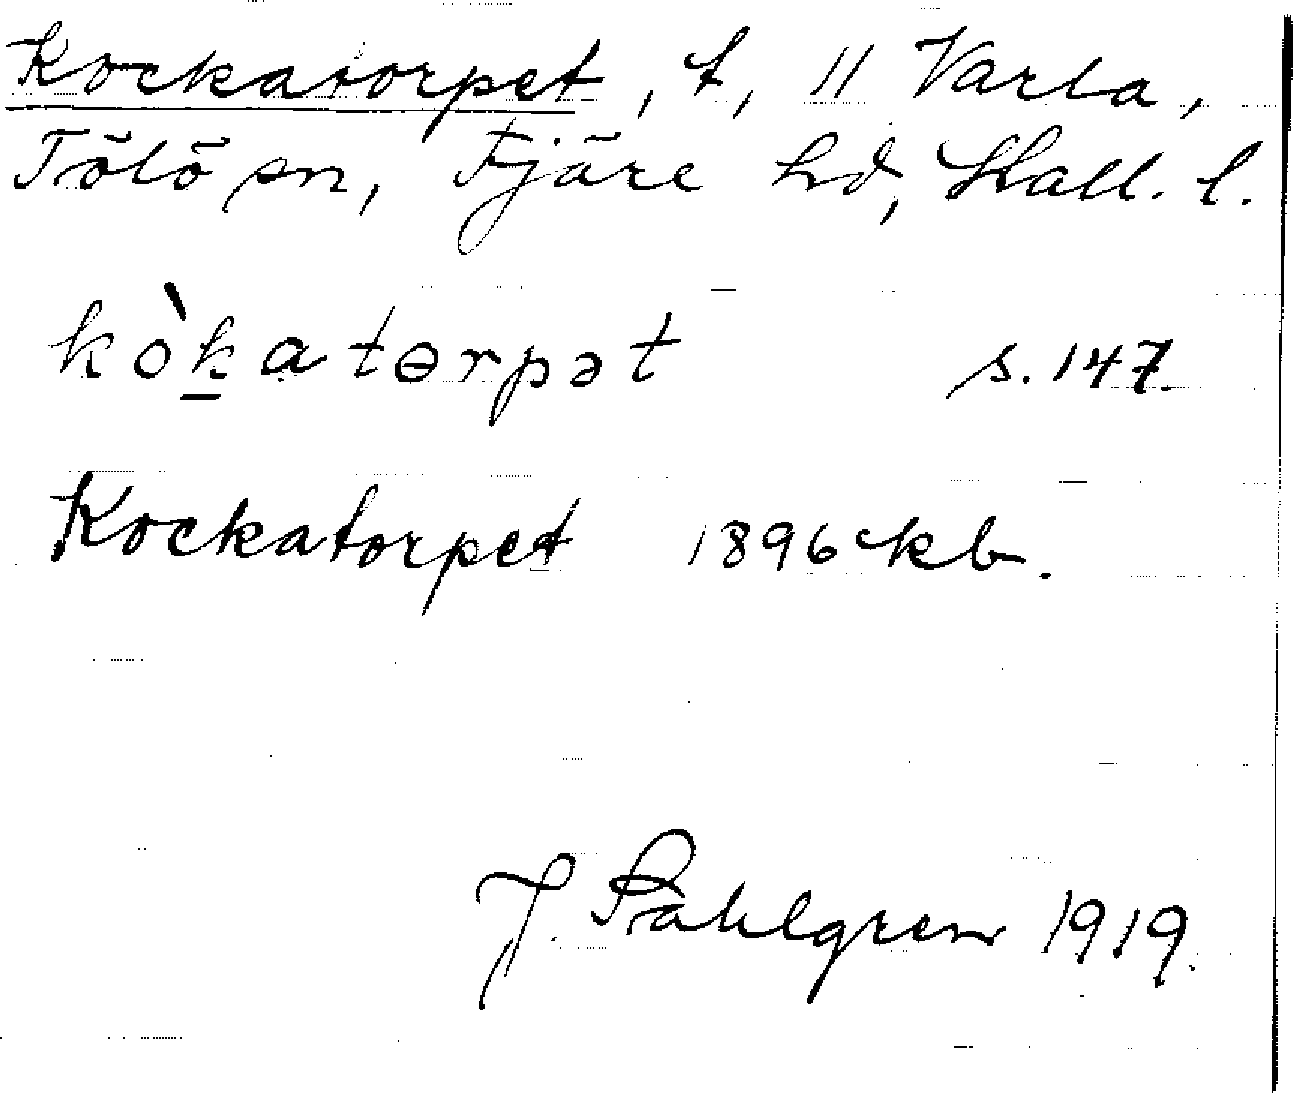 Kockatorpet, t, 11 Varla,
Tölö sn, Fjäre hd, Hall. l.
kòk̲atɵrpət s. 147.
Kockatorpet 1896 kb.
J. Sahlgren 1919.